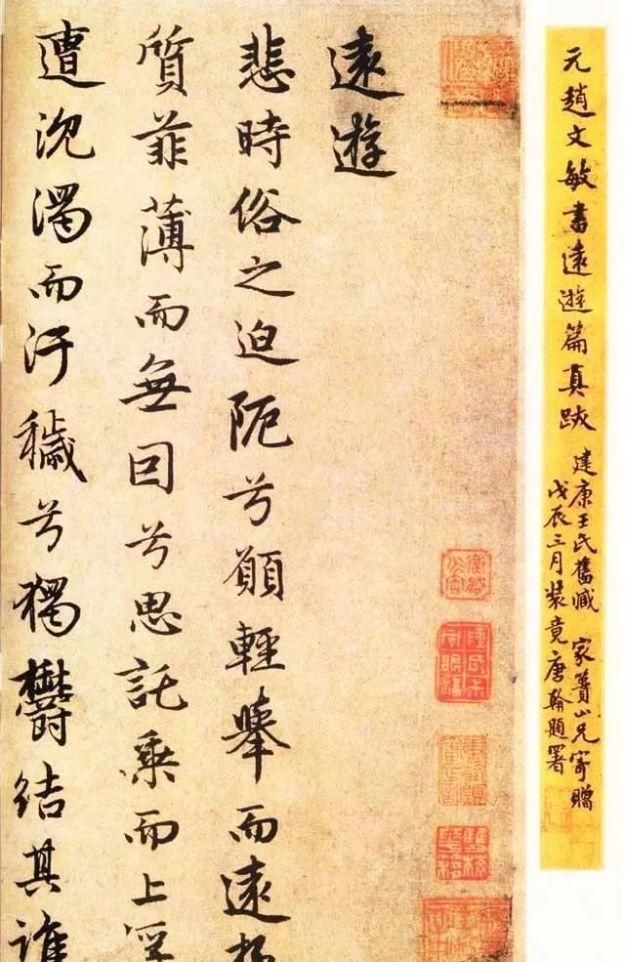 元趙文敏書遠遊篇真跡
建康王氏舊臧 家山兄寄贈
戊辰三月裝竟唐翰題署
遠遊
悲時俗之迫阨兮願輕舉而遠
質菲薄而無囙兮思託乘而上浮
遭沉濁而汙穢兮獨鬱結其誰